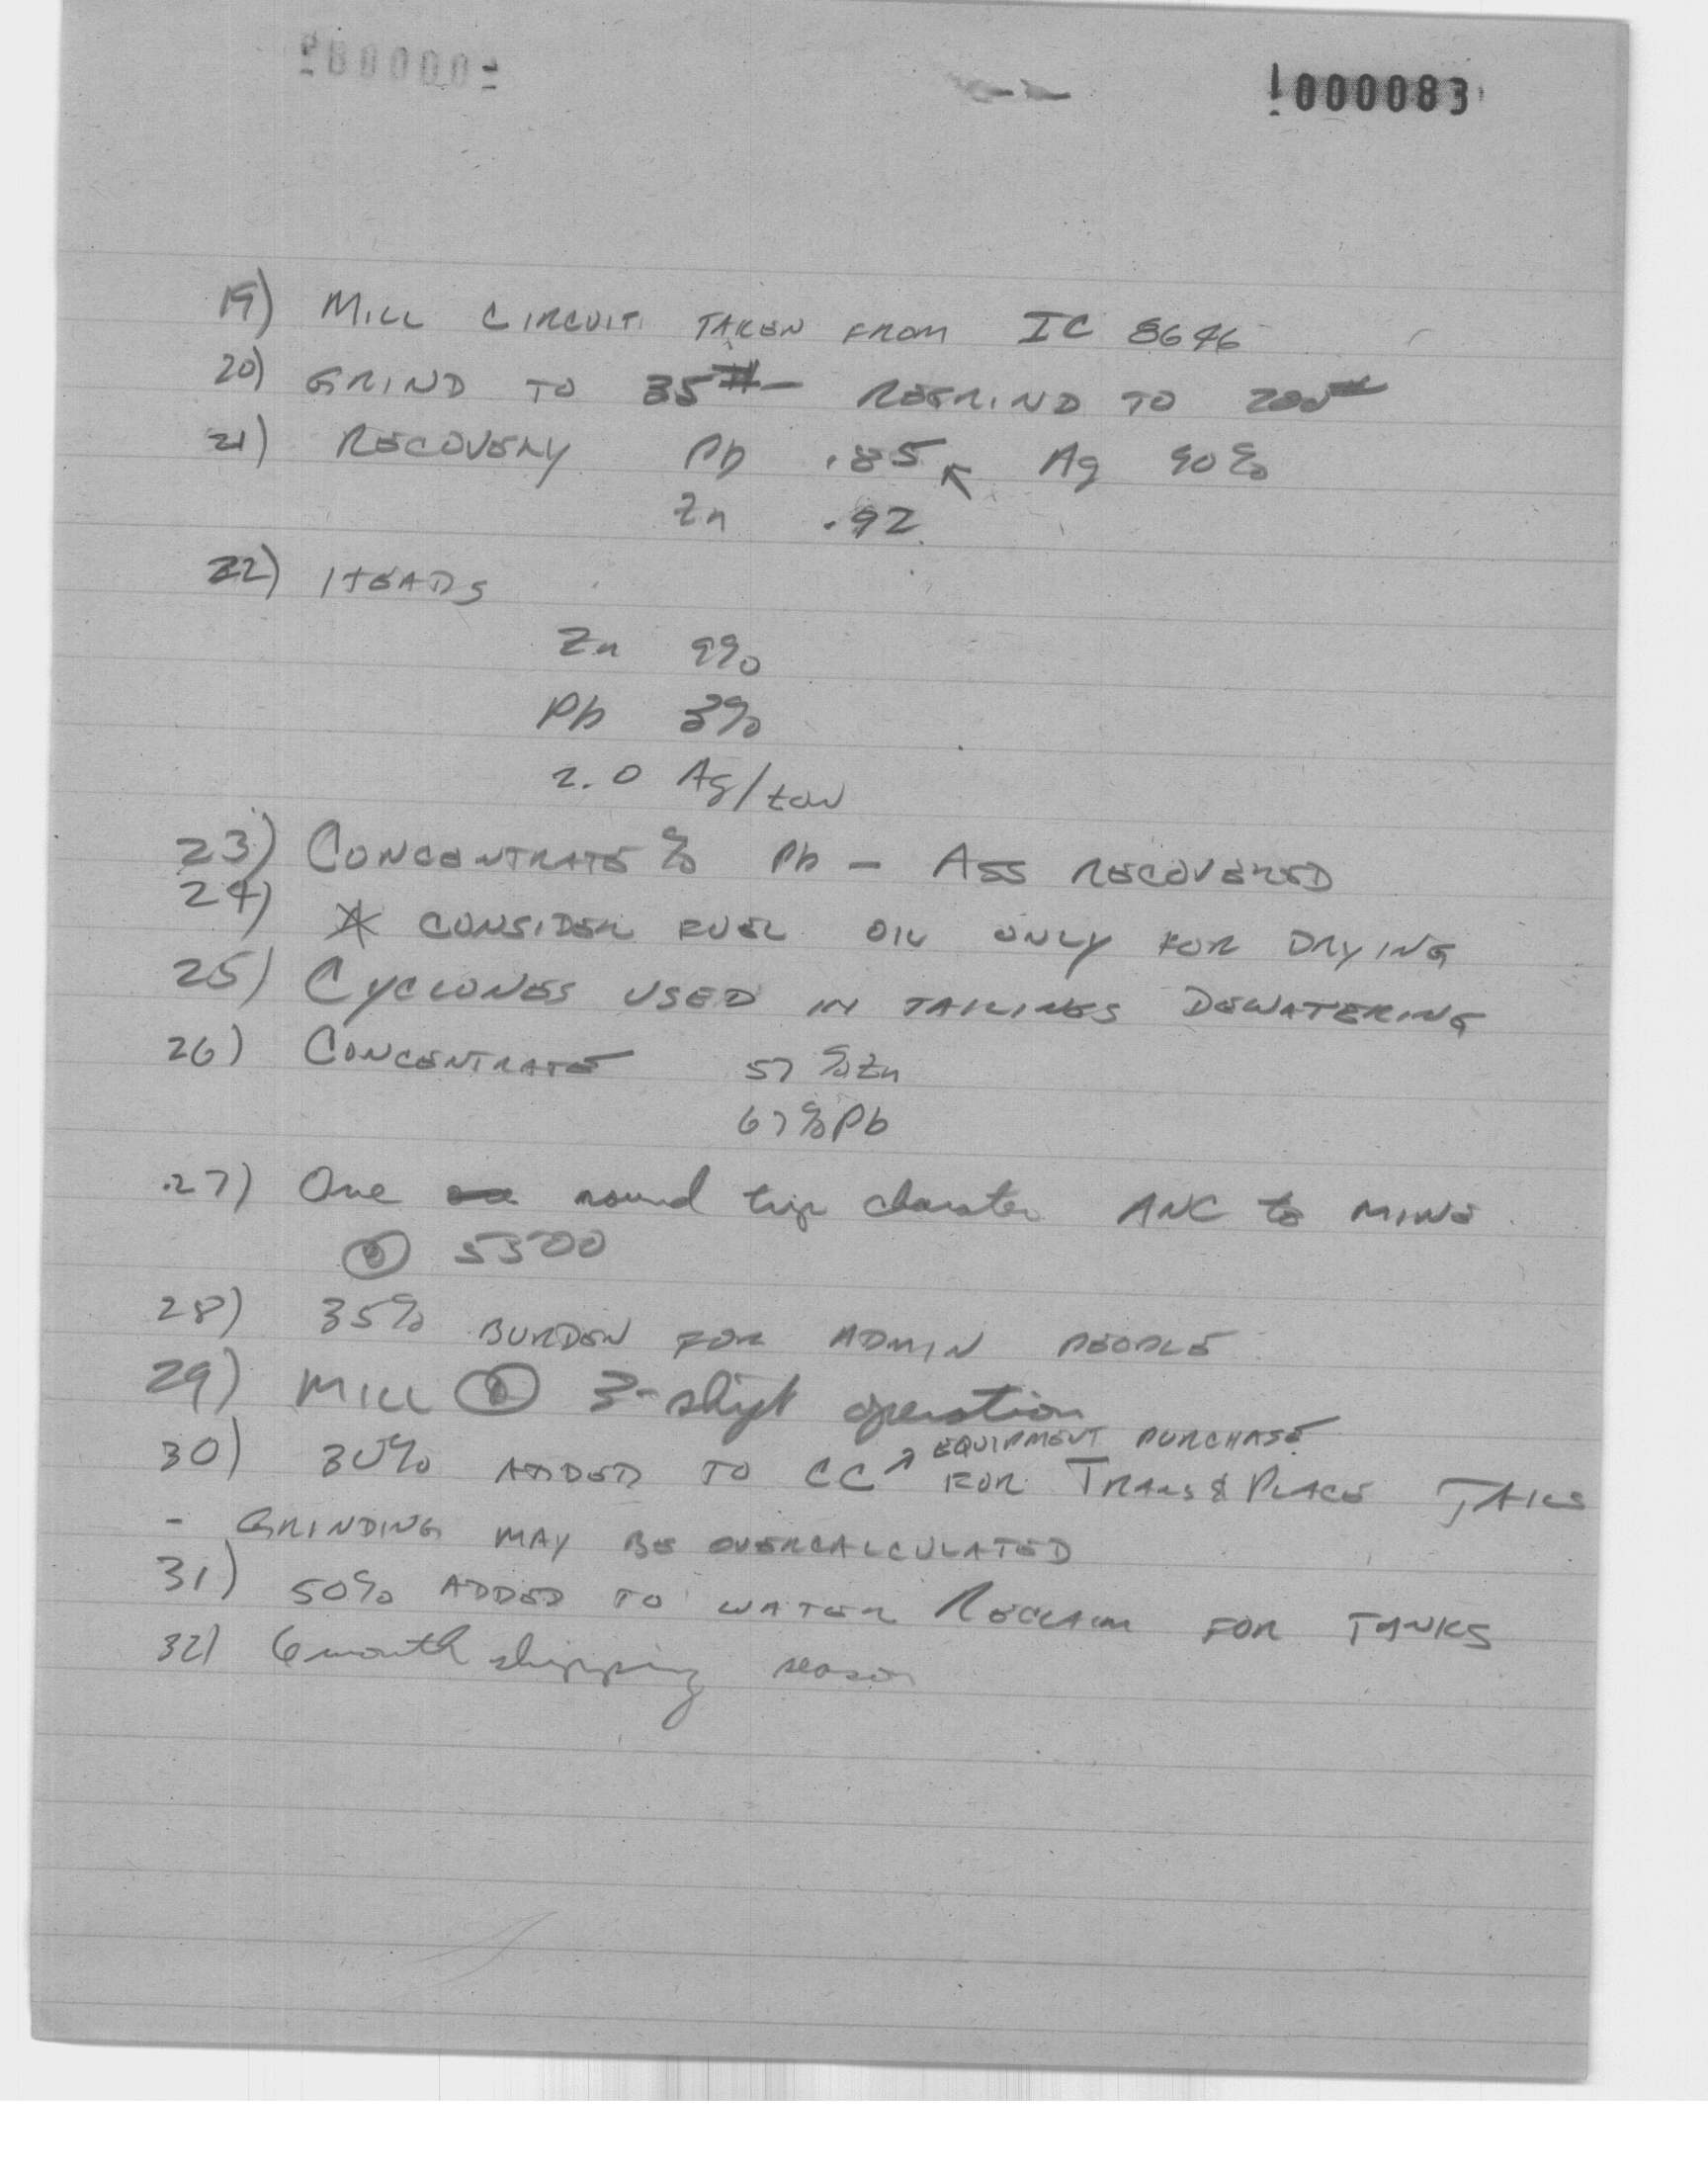 000083
19) MILL CIRCUIT TAKEN FROM IC 8646
20) GRIND TO 35# - REGRIND TO 200#
21) RECOVERY Pb .85 Ag 90%
Zn .92
22) HEADS
Zn 9%
Pb 3%
2.0 Ag/ton
23) CONCENTRATE % Pb - ASS RECOVERED
24) * CONSIDER FUEL OIL ONLY FOR DRYING
25) CYCLONES USED IN TAILINGS DEWATERING
26) CONCENTRATE 57 % Zn
67 % Pb
27) One round trip charter ANC to MINE
@ 5300
28) 35% BURDEN FOR ADMIN PEOPLE
29) MILL @ 3-shift operation
EQUIPMENT PURCHASE
30) 30% ADDED TO CC FOR TRANS & PLACE TAILS
- GRINDING MAY BE OVERCALCULATED
31) 50% ADDED TO WATER RECLAIM FOR TANKS
32) 6 month shipping season